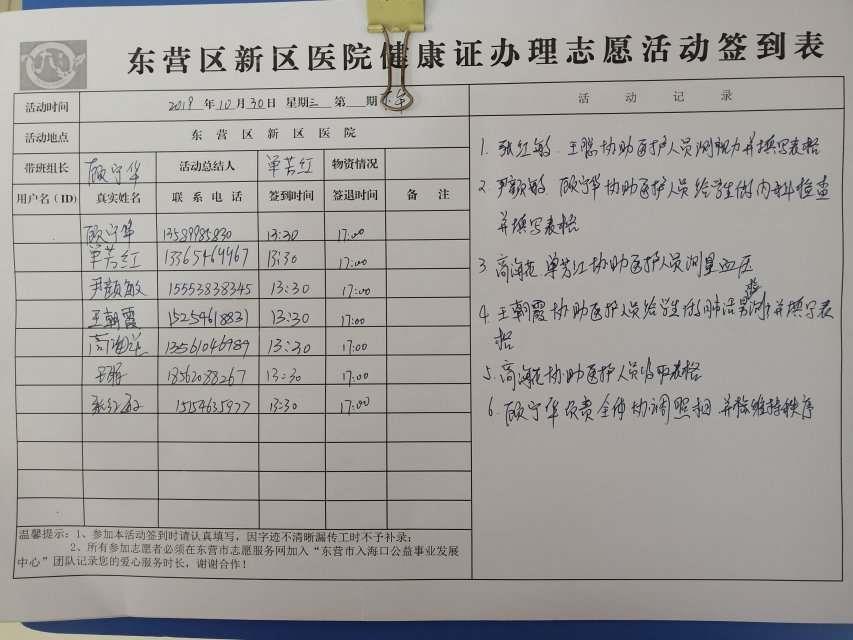 东营区新区医院健康证办理志愿活动签到表
活动时间 2019年10月30日 星期三 第 期 下午
活动地点 东营区新区医院
带班组长 顾宁华 活动总结人 单芳红 物资情况
用户名（ID） 真实姓名 联系电话 签到时间 签退时间 备注
顾宁华 13589985830 13:30 17:00
单芳红 13365469967 13:30 17:00
尹颜敏 15553838345 13:30 17:00
王朝霞 15254618831 13:30 17:00
高海花 13561046989 13:30 17:00
18562088267 13:30 17:00
张红敏 15154635977 13:30 17:00
温馨提示：1、参加本活动签到时请认真填写，因字迹不清晰漏传工时不予补录；
2、所有参加志愿者必须在东营市志愿服务网加入“东营市入海口公益事业发展
中心”团队记录您的爱心服务时长，谢谢合作！
活动记录
1. 张红敏、王 协助医护人员测视力并填写表格
2. 尹颜敏 顾宁华协助医护人员给学生做内科检查
并填写表格
3. 高海花 单芳红协助医护人员测量血压
4. 王朝霞协助医护人员给学生做肺活量测并填写表
格
5. 高海花协助医护人员 表格
6. 顾宁华负责全体协调照相 并 维持秩序